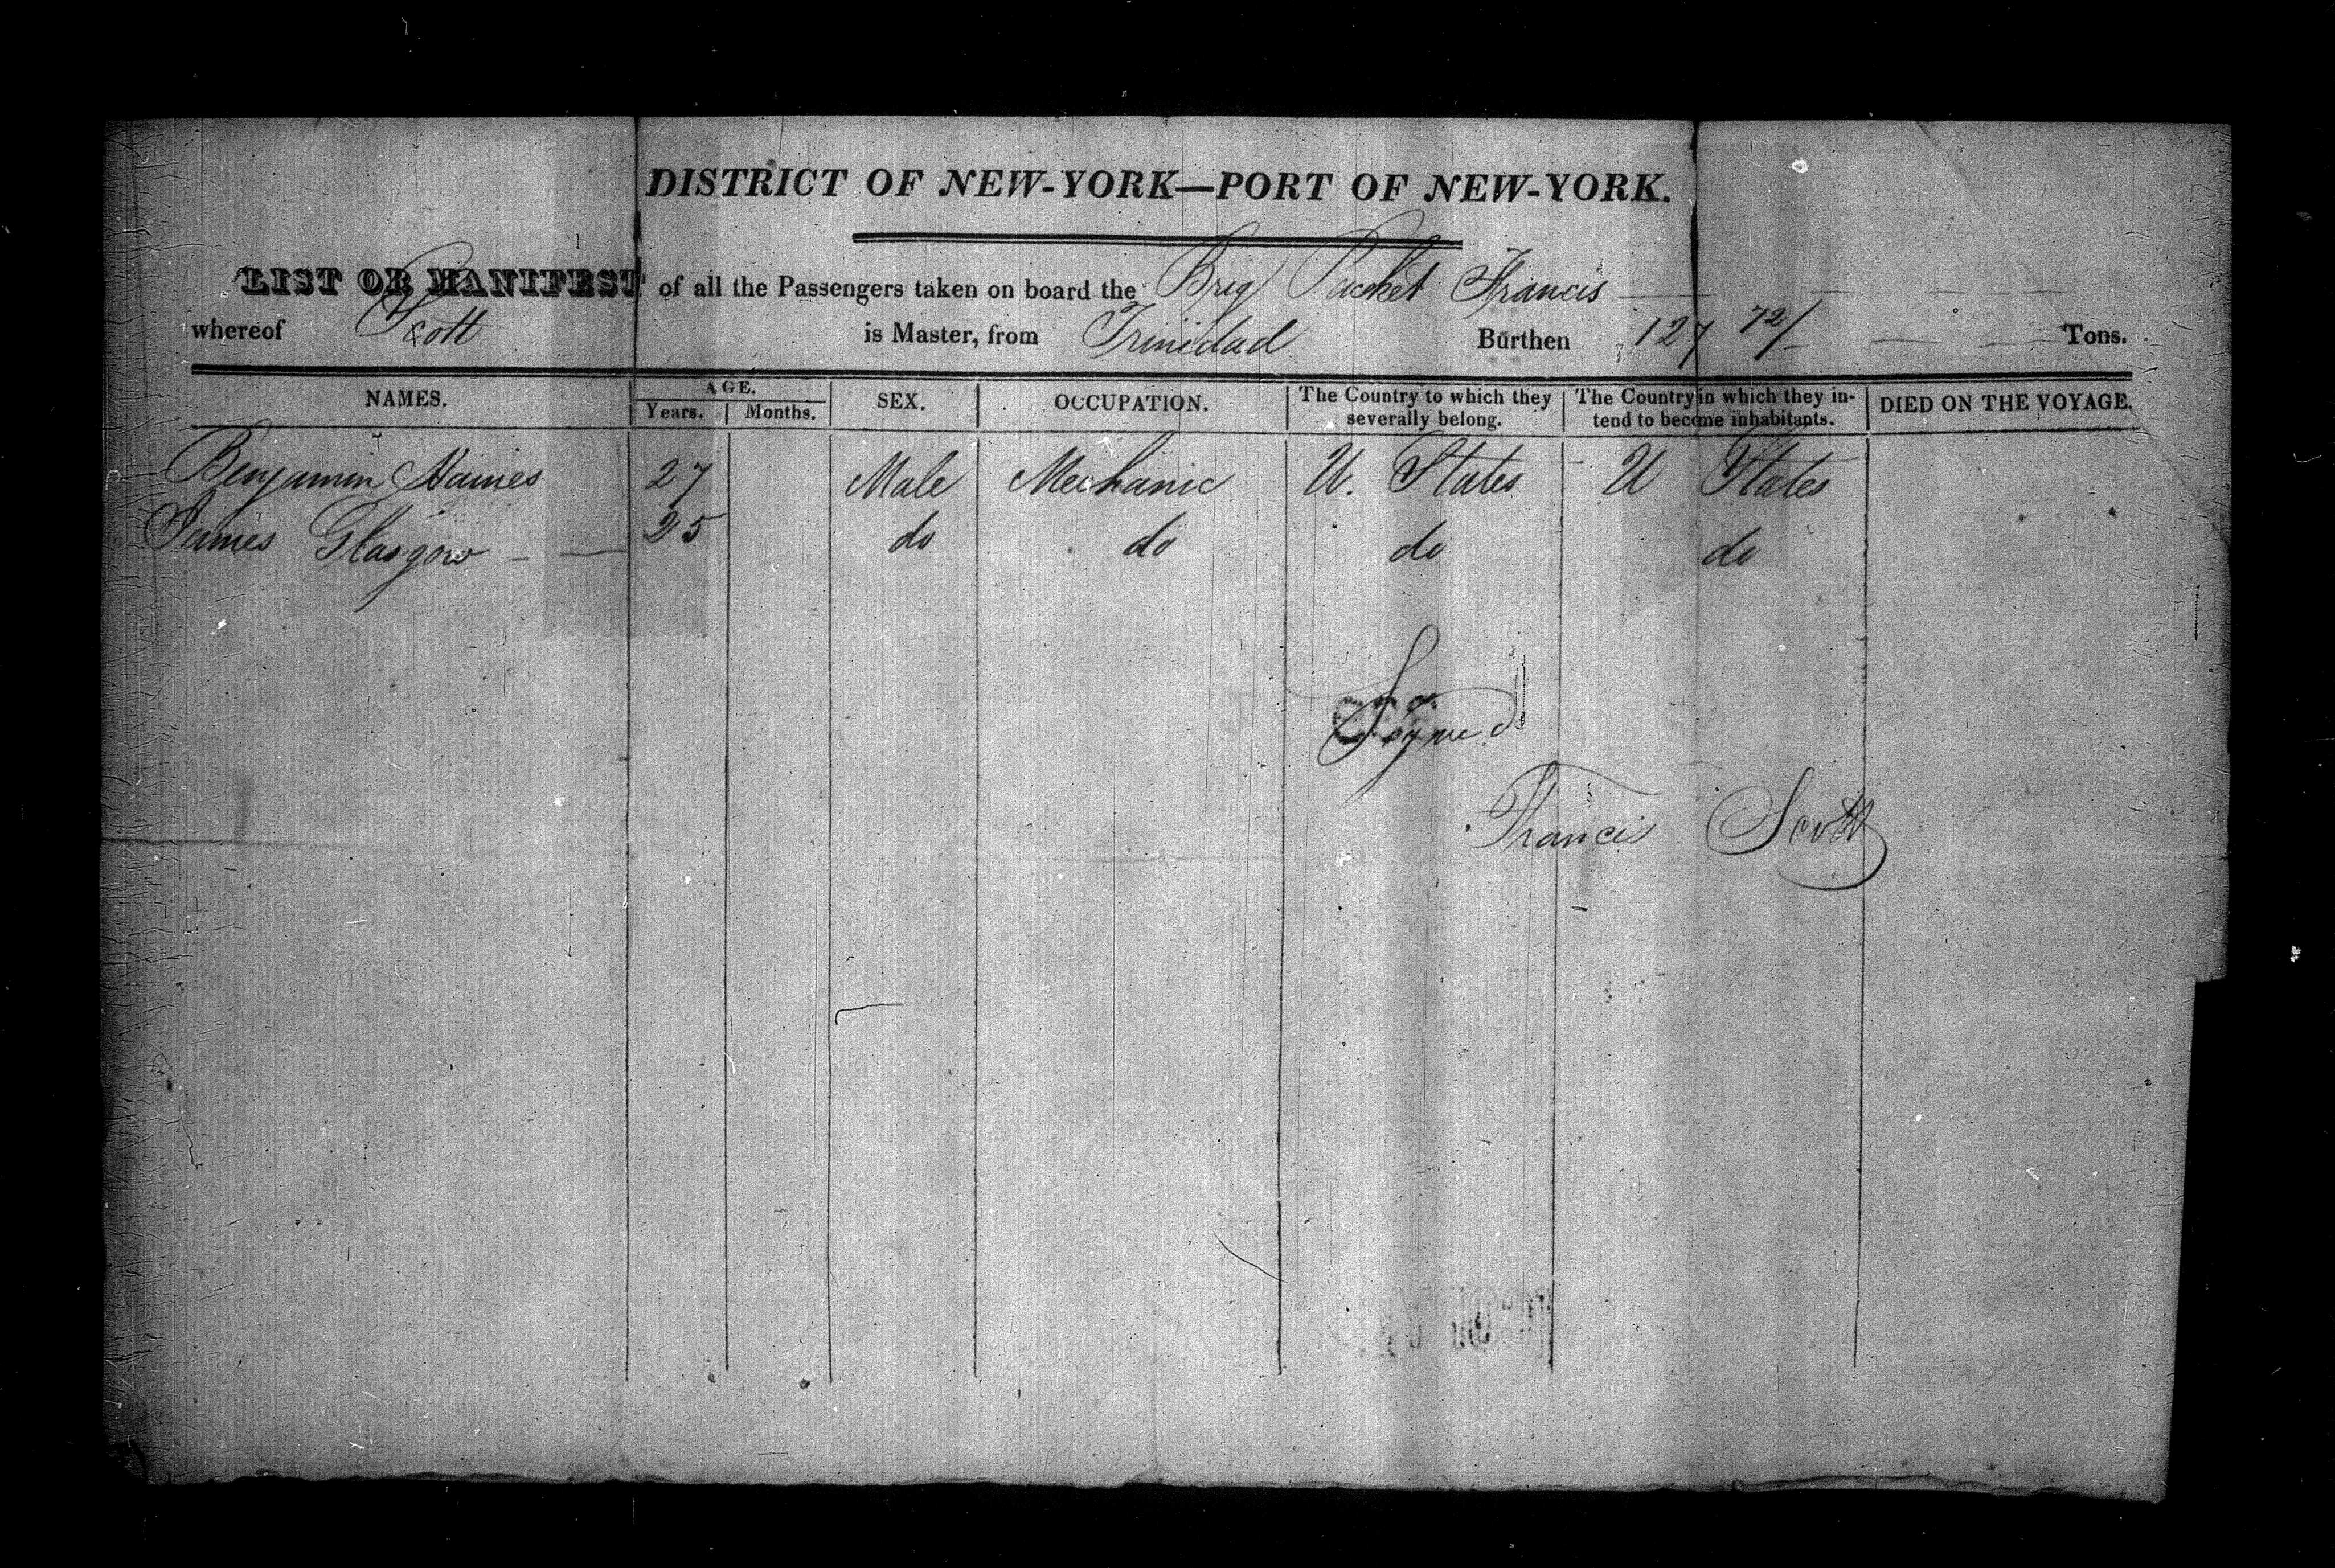 DISTRICT OF NEW-YORK—PORT OF NEW-YORK.
LIST OR MANIFEST of all the Passengers taken on board the Brig Packet Francis
whereof Scott is Master, from Trinidad Burthen 127 72/ Tons.
NAMES. AGE. SEX. OCCUPATION. The Country to which they severally belong. The Country in which they intend to become inhabitants. DIED ON THE VOYAGE.
Years. Months.
Benjamin Haines 27 Male Mechanic U. States U States
James Glasgow 25 do do do do
Signed
Francis Scott